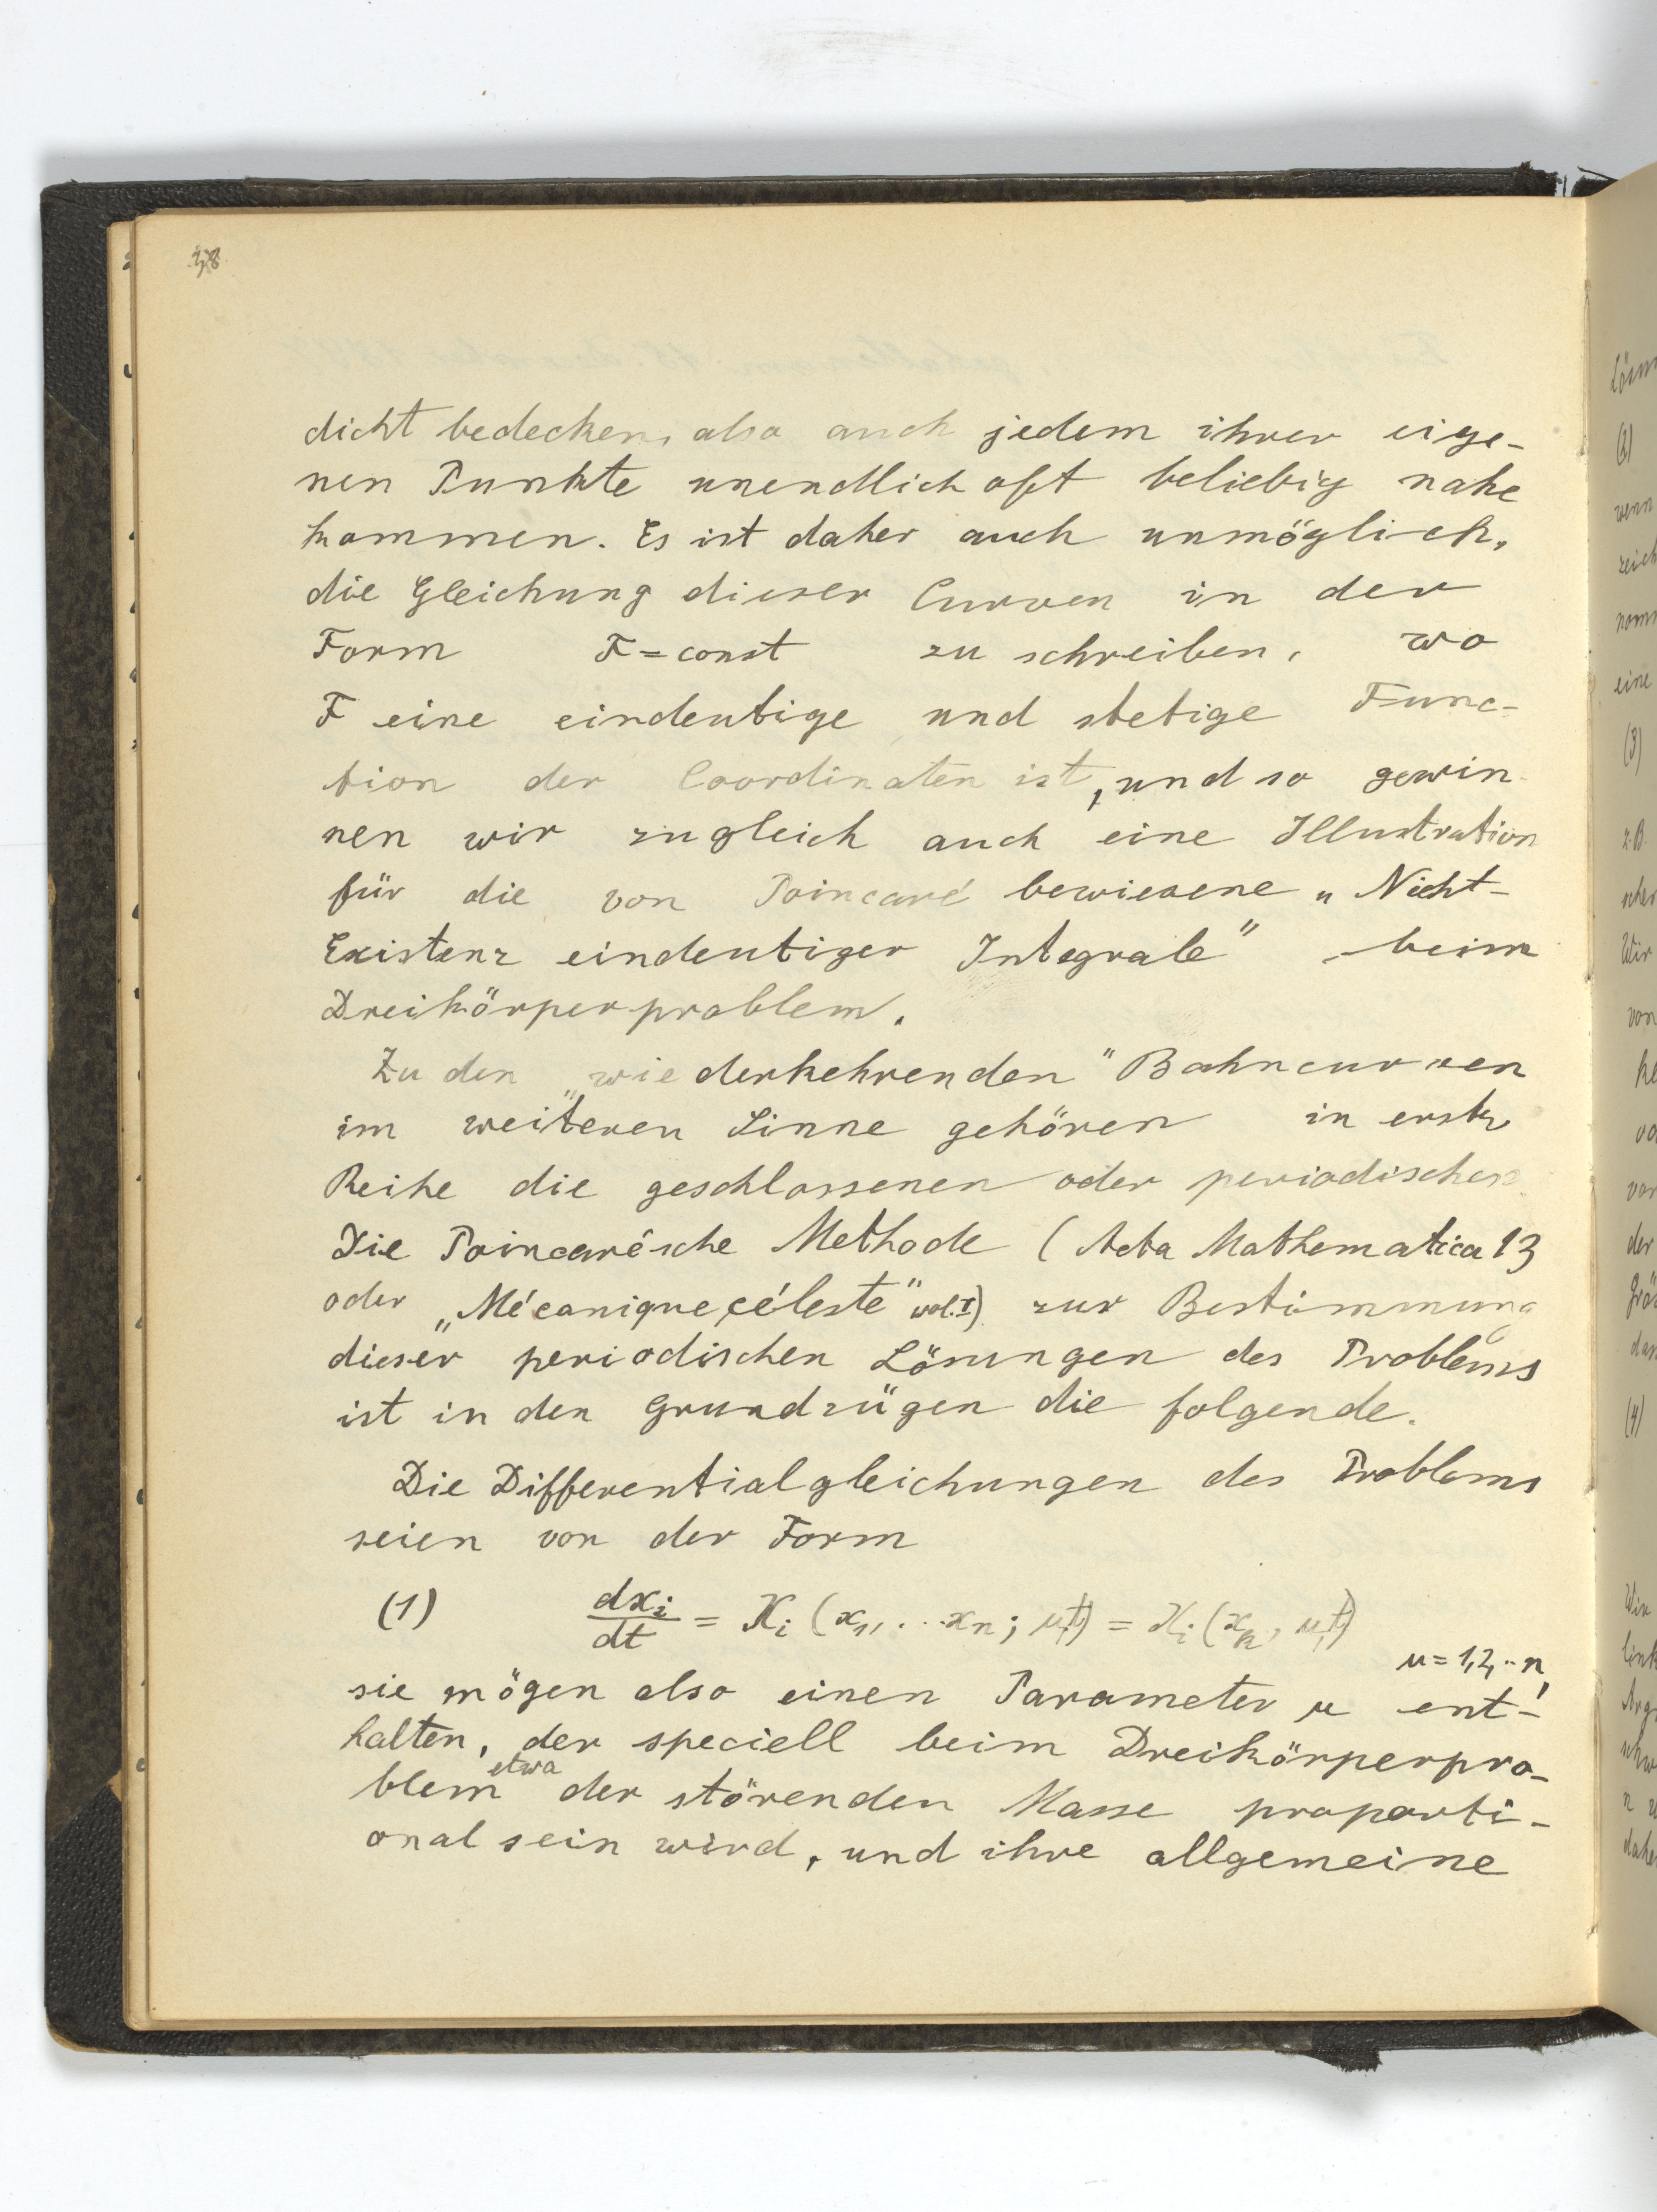 38
dicht bedecken, also auch jedem ihrer eige-
nen Punkte unendlich oft beliebig nahe
kommen. Es ist daher auch unmöglich,
die Gleichung dieser Curven in der
Form F = const zu schreiben, wo
F eine eindeutige und stetige Func-
tion der Coordinaten ist, und so gewin-
nen wir zugleich auch eine Illustration
für die von Poincaré bewiesene „Nicht-
Existenz eindeutiger Integrale" beim
Dreikörperproblem.
Zu den „wiederkehrenden" Bahncurven
im weiteren Sinne gehören in erster
Reihe die geschlossenen oder periodischen
Die Poincarésche Methode (Acta Mathematica 13
oder „Mécanique céleste" vol. I) zur Bestimmung
dieser periodischen Lösungen des Problems
ist in den Grundzügen die folgende.
Die Differentialgleichungen des Problems
seien von der Form
(1) dxi/dt = Xi (x1, ... xn; μ, t) = Xi (xκ, μ, t)
κ = 1, 2, .. n,
sie mögen also einen Parameter μ ent-
halten, der speciell beim Dreikörperpro-
blem etwa der störenden Masse proporti-
onal sein wird, und ihre allgemeine